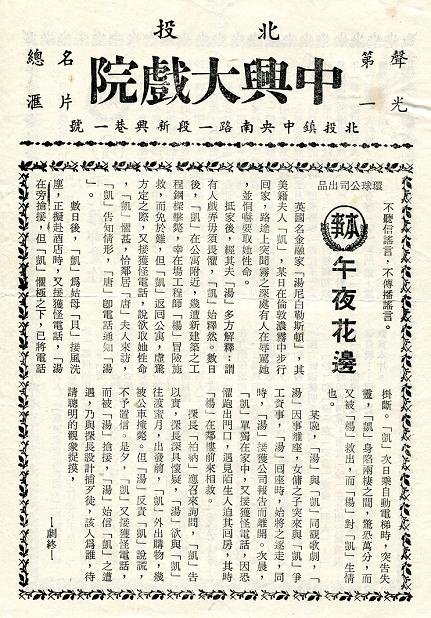 北投
聲光第一
中興大戲院
名片總滙
北投鎮中央南路一段新興巷一號
不聽信謠言,不傳播謠言。
環球公司出品
本事
午夜花邊
英國名金融家「湯尼白勒斯頓」,其
美籍夫人「凱」,某日在倫敦濃霧中步行
回家,路途上突聞霧之深處有人在辱罵她
,並恫嚇要取她性命。
抵家後,經其夫「湯」多方解釋:謂
有人戲弄毋須畏懼,「凱」始釋然。數日
後,「凱」在公寓附近,幾遭新建築之工
程鋼樑擊斃,幸在場工程師「楊」冒險施
救,而免於難,但「凱」返回公寓,虛驚
方定之際,又接獲怪電話,說欲取她性命
,「凱」懼甚,恰鄰居「唐」夫人來訪,
「凱」告知情形,「唐」即電話通知「湯
」。
數日後,「凱」為姑母「貝」接風洗
塵,正擬赴酒店時,又接獲怪電話,「湯
在旁搶接,但「凱」懼極之下,已將電話
掛斷。「凱」次日乘自動電梯時,突告失
靈,「凱」身陷兩樓之間,驚恐萬分,而
又被「楊」救出,而「楊」對「凱」生情
也。
某晚,「湯」與「凱」同觀歌劇,「
湯」因事離座,女傭之子突來與「凱」爭
工資事,「湯」回座時,始將之逐走,同
時,「湯」接獲公司報告而離開。次晨,
「凱」單獨在家中,又接獲怪電話,因恐
懼跑出門口,遇見陌生人迫其回房,其時
「楊」在鄰樓前來相救。
探長「柏納」應召來詢問,「凱」告
以實,探長深具懷疑,「湯」欲與「凱」
往渡蜜月,出發前,「凱」外出購物,幾
被公車撞斃。但「湯」反責「凱」說謊,
不予置信。是夕,「凱」又接獲怪電話,
而被「湯」搶接,「湯」始信「凱」之遭
遇,乃與探長設計捕歹徒,該人爲誰,待
請聰明的觀衆捉摸,
—劇終—